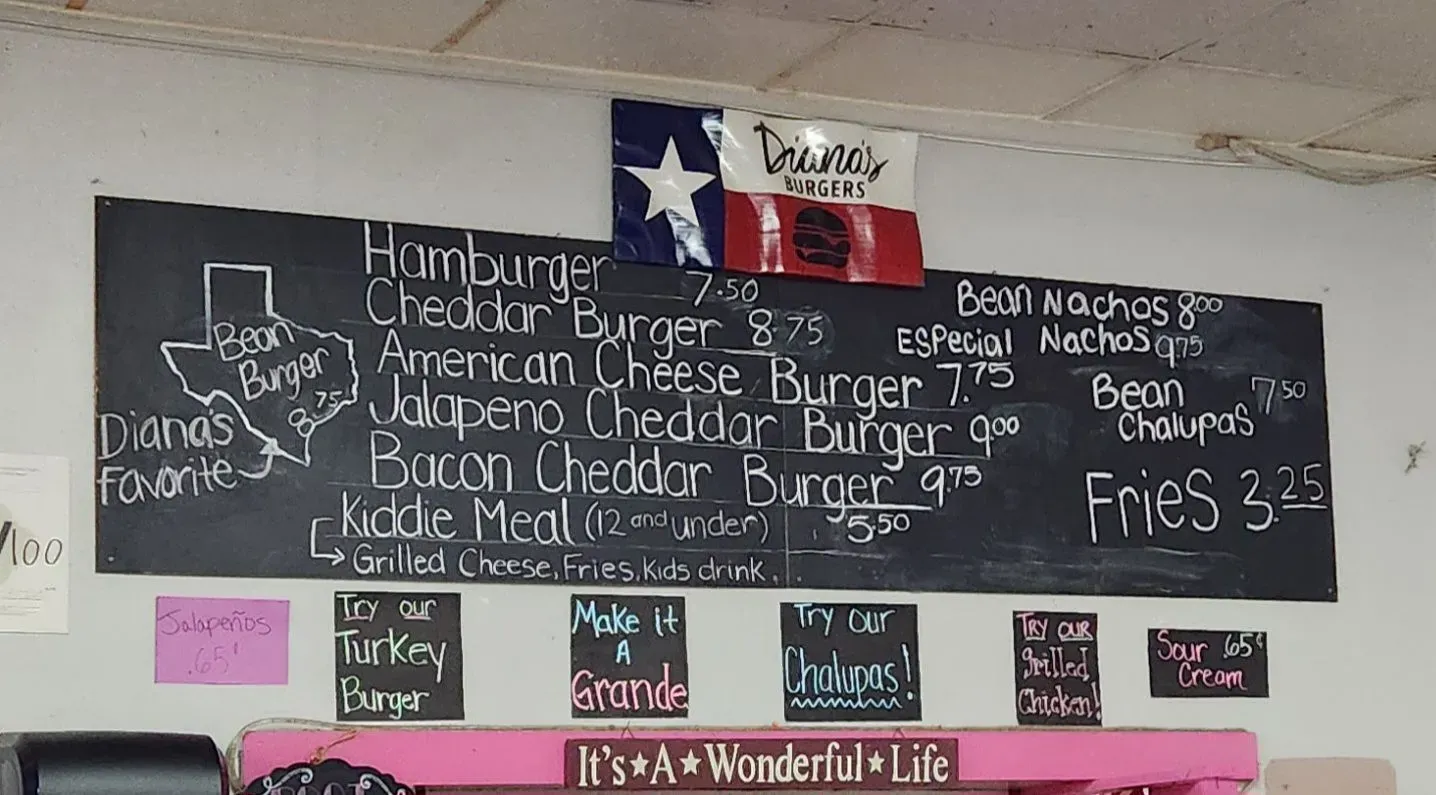 Diana's
BURGERS
Hamburger 7.50
Cheddar Burger 8.75
American Cheese Burger 7.75
Jalapeno Cheddar Burger 9.00
Bacon Cheddar Burger 9.75
Kiddie Meal (12 and under) 5.50
Grilled Cheese, Fries, Kids drink.
Bean
Burger
8.75
Diana's
Favorite
Bean Nachos 8.00
ESPecial Nachos 9.75
Bean 7.50
Chalupas
Fries 3.25
/100
Jalapeños
.65¢
Try our
Turkey
Burger
Make it
A
Grande
Try our
Chalupas!
Try our
grilled
Chicken!
Sour .65¢
Cream
It's★A★Wonderful★Life